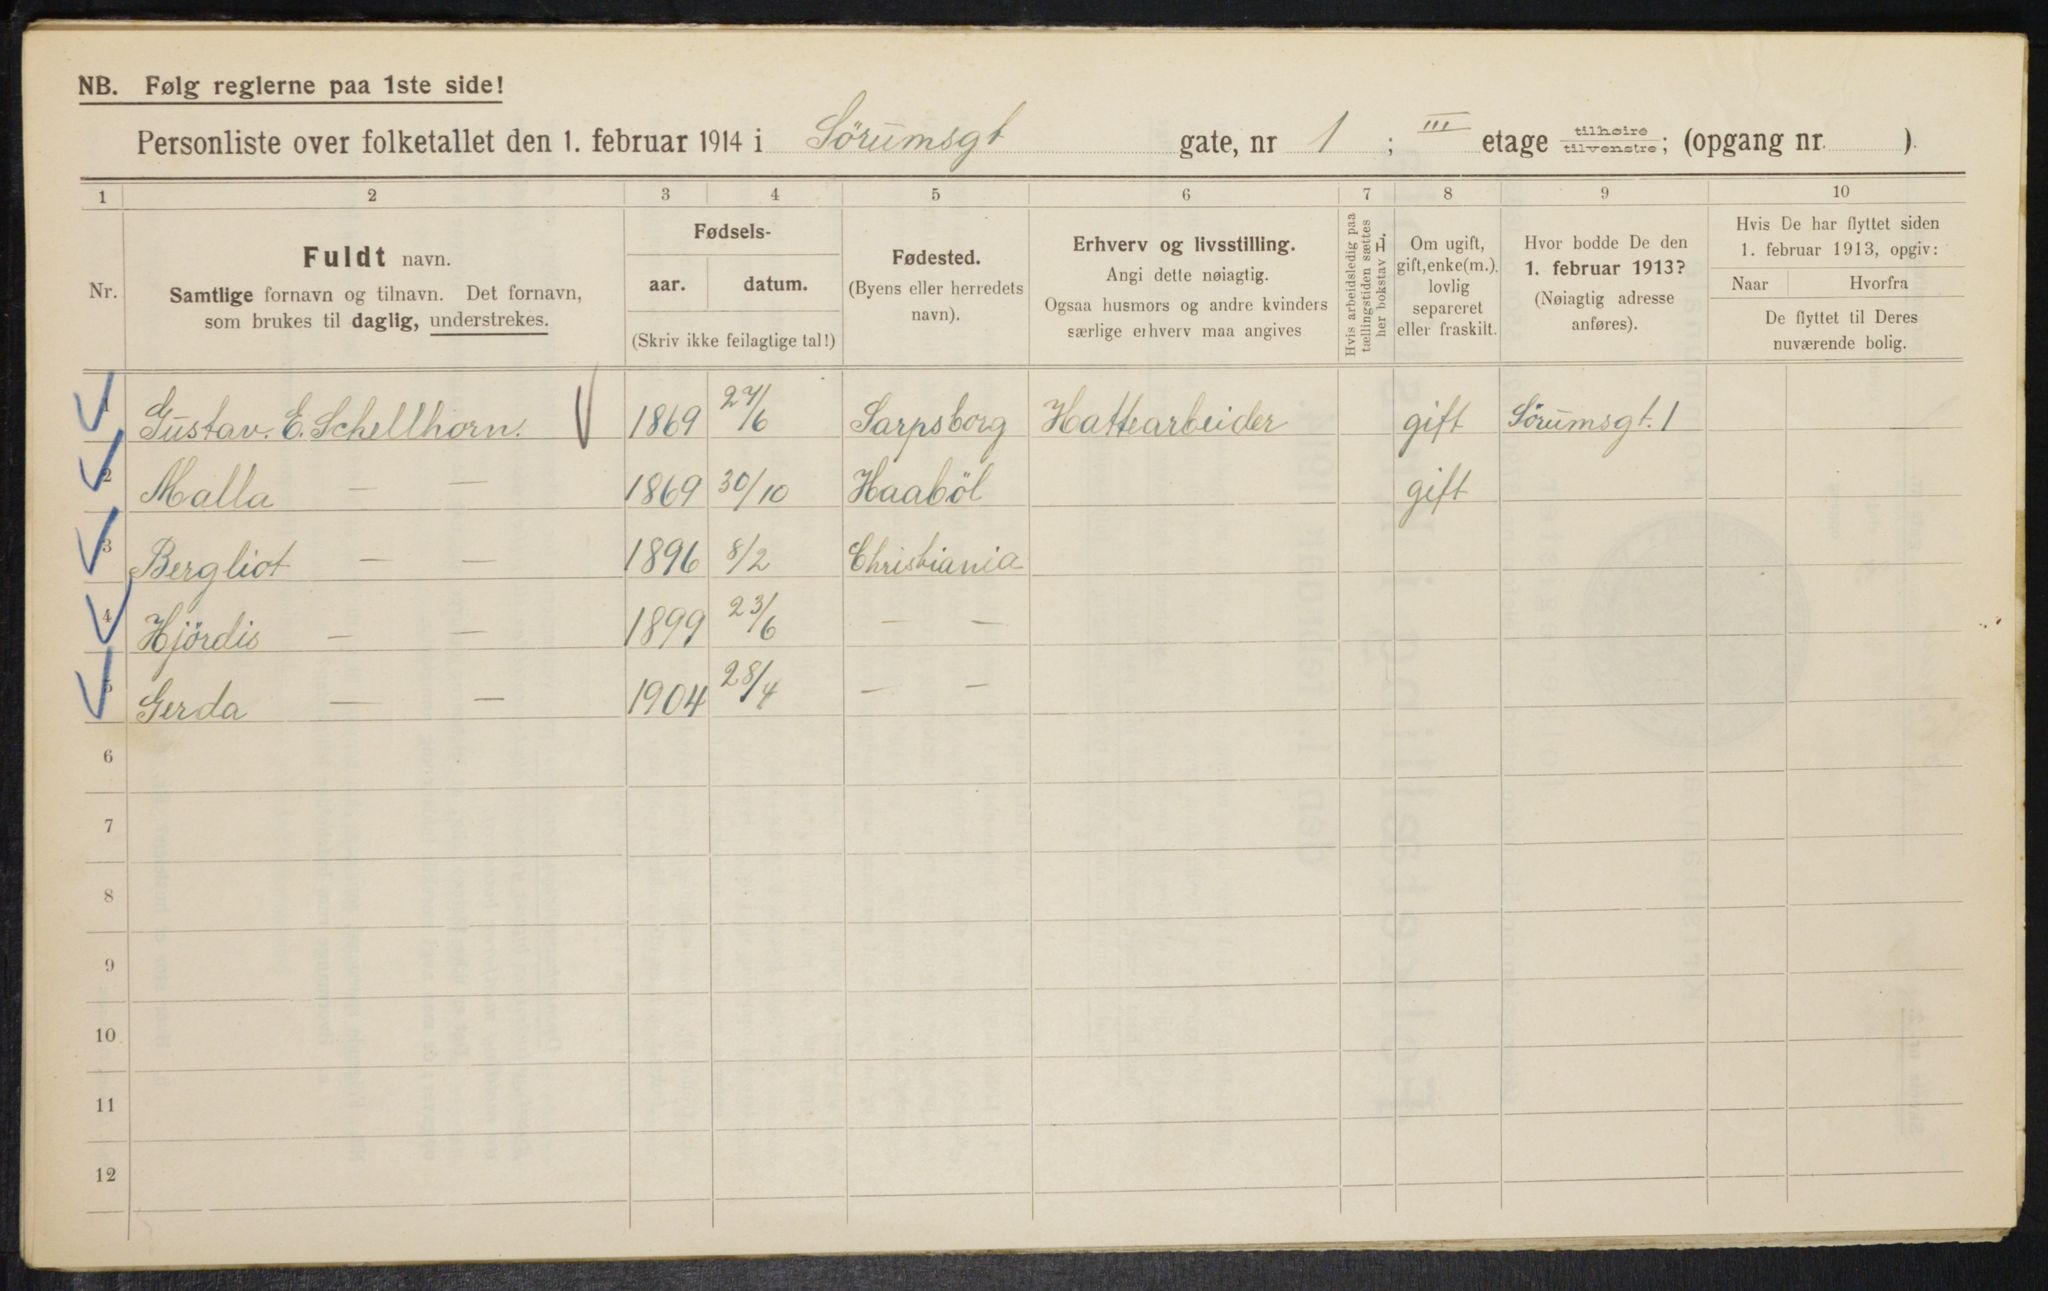 NB. Følg reglerne paa 1ste side!
Personliste over folketallet den 1. februar 1914 i Sörumsgt gate, nr 1 ; III etage tilhøire tilvenstre; (opgang nr. ).
1 2 3 4 5 6 7 8 9 10
Nr.
Fuldt navn.
Samtlige fornavn og tilnavn. Det fornavn,
som brukes til daglig, understrekes.
Fødsels-
aar. datum.
(Skriv ikke feilagtige tal!)
Fødested.
(Byens eller herredets
navn).
Erhverv og livsstilling.
Angi dette nøiagtig.
Ogsaa husmors og andre kvinders
særlige erhverv maa angives
Hvis arbeidsledig paa
tællingstiden sættes
her bokstav L.
Om ugift,
gift, enke(m.),
lovlig
separeret
eller fraskilt.
Hvor bodde De den
1. februar 1913?
(Nøiagtig adresse
anføres).
Hvis De har flyttet siden
1. februar 1913, opgiv:
Naar Hvorfra
De flyttet til Deres
nuværende bolig.
1 Gustav. E. Schellhorn. 1869 27/6 Sarpsborg Hattearbeider gift Sörumsgt. 1
2 Malla — — 1869 30/10 Haaböl gift
3 Bergliot — — 1896 8/2 Christiania
4 Hjördis — — 1899 23/6 — —
5 Gerda — — 1904 28/4 — —
6
7
8
9
10
11
12